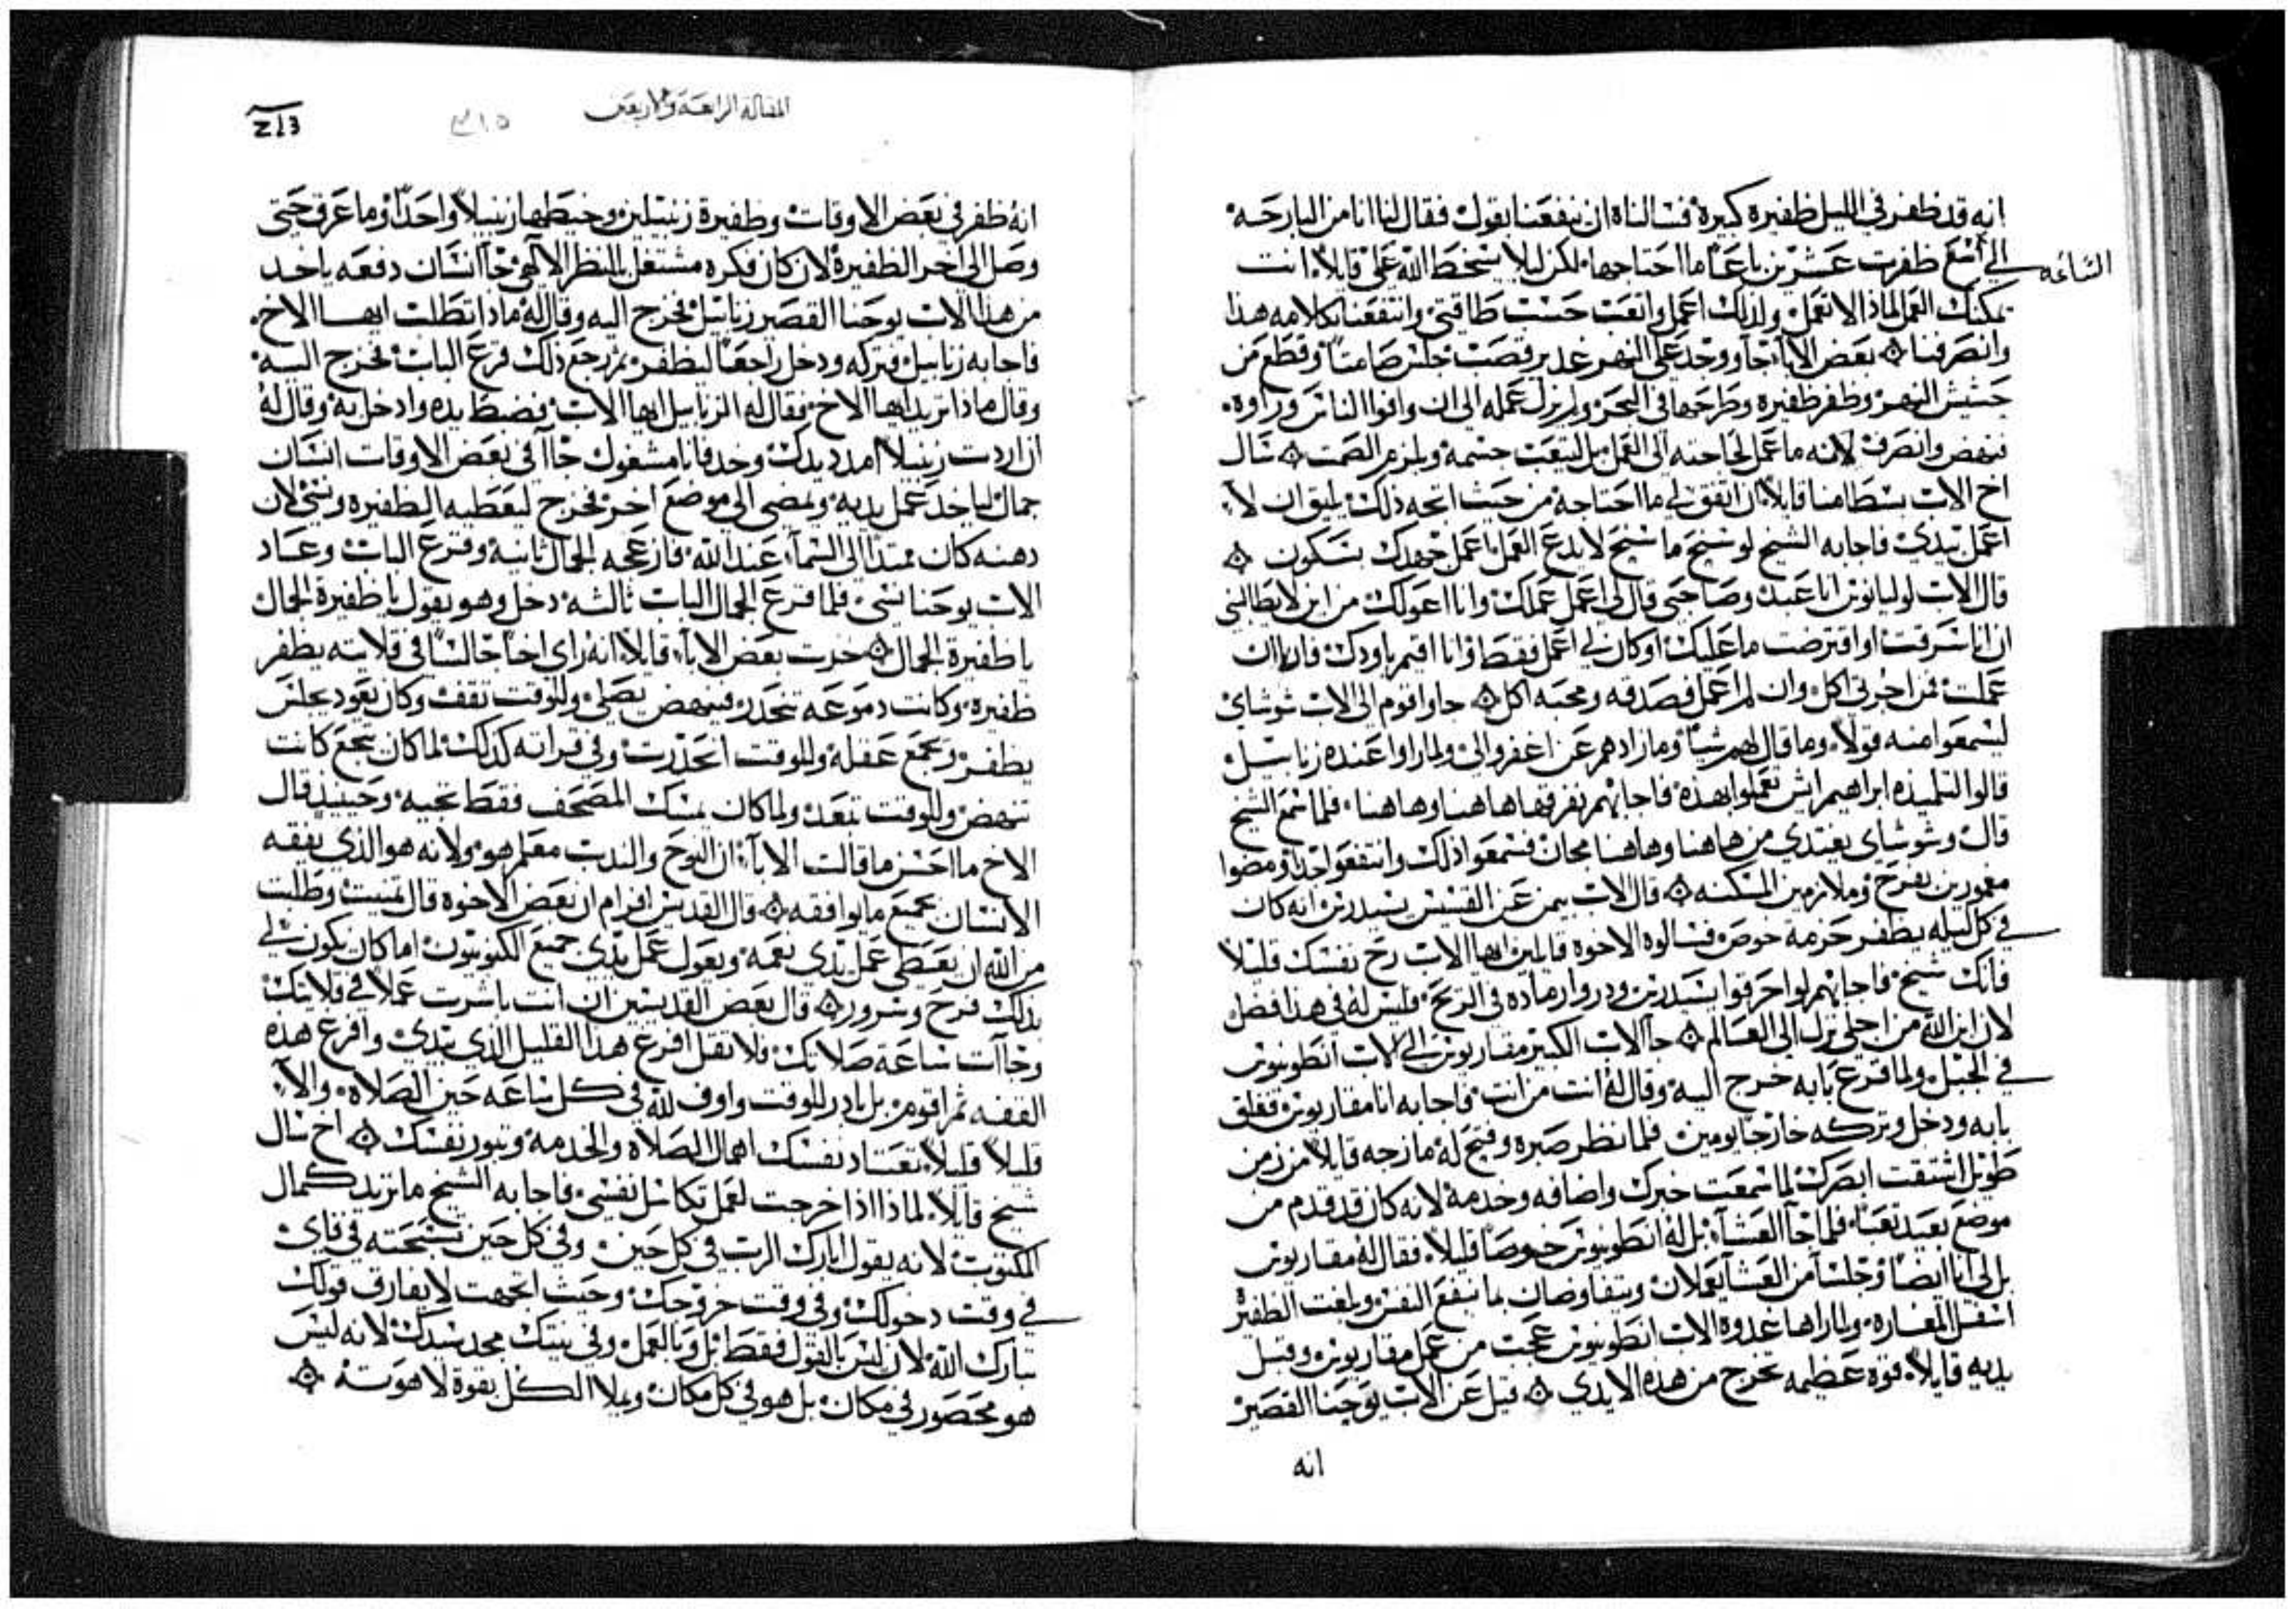 انه قد ظفر في الليل ظفيره كبيرة فسالناه ان ينفعنا بقول فقال لنا انا من البارحه
الي الساعه ظفرت عشرين باعًا ما احتاجها لكن ليلا يسخط الله علي قايلاً انت
يمكنك العمل لماذا لا تعمل ولذلك اعمل واتعب حسب طاقتي وانتفعنا بكلامه هذا
وانصرفنا ۞ بعض الابآء جآ ووجد علي النهر غدير قصب جلس صامتاً وقطع من
حشيش النهر وظفر ظفيره وطرحها في البحر ولم يزل عمله الى ان وافوا الناس وراوه
فنهض وانصرف لانه ما عمل لحاجته الى العمل بل ليتعب جسمه ويلزم الصمت ۞ سال
اخ الاب بسطامنا قايلاً ان اتفق لي ما احتاجه من حيث اتجه ذلك يليق ان لا
اعمل بيدي فاجابه الشيخ لو سنح ما سنح لا تدع العمل اعمل جهدك بسكون ۞
قال الاب لوليانوس انا عبد وصاحبي قال لي اعمل عملك وانا اعولك من اين لا تطالبني
ان انا سرقت او اقترضت ما عليك او كان لي اعمل فقط وانا اقيم باودك فانا ان
عملت فمن اجرتي اكل وان لم اعمل فصدقه ومحبه اكل ۞ جاوا قوم الى الاب شوشاي
ليسمعوا منه قولاً وما قال لهم شياً وما زادهم عن اغفروا لي ولما راوا عنده زنابيل
قالوا لتلميذه ابراهيم ايش تعملوا بهذه فاجابهم نفرقها هاهنا وهاهنا فلما سمع الشيخ
قال وشوشاي يغتدي من هاهنا وهاهنا مجان فسمعوا ذلك وانتفعوا جدا ومضوا
مغمورين بفرح وملازمين المسكنه ۞ قال الاب بيمن عن القسيس يسيدرس انه كان
في كل ليله يظفر حزمة خوص فسالوه الاخوه قايلين ايها الاب رح نفسك قليلاً
فانك شيخ فاجابهم لو احرقوا يسيدرس ودروا رماده في الريح فليس له في هذا فضل
لان ابن الله من اجلي نزل الى العالم ۞ جآ الاب الكبير مقاريوس الي الاب انطونيوس
في الجبل ولما قرع بابه خرج اليه وقال له انت من انت فاجابه انا مقاريوس فغلق
بابه ودخل وتركه خارجًا يومين فلما نظر صبره وفتح له مازجه قايلاً من زمن
طويل اشتقت ابصرك لما سمعت خبرك واضافه وخدمه لانه كان قد قدم من
موضع بعيد تعباً فلما جآ العشآ بل له انطونيوس خوصًا قليلاً فقال له مقاريوس
بل لي انا ايضًا وجلسآ من العشآ يعملان ويتفاوضان بما ينفع النفس وبلغت الظفيره
اسفل المغاره ولما راها غدوة الاب انطونيوس عجب من عمل مقاريوس وقبل
يديه قايلاً قوه عظيمه تخرج من هذه الايدي ۞ قيل عن الاب يوحنا القصير
انه
المقالة الرابعة والاربعين
٣١٥
213
انه ظفر في بعض الاوقات وظفيرة زنبيلين وخيطها زنبيلاً واحداً وما عرف حتى
وصل الى اخر الظفيرة لان كان فكره مشتغل بالنظر الالآهي جآ انسان دفعه ياخد
من هذا الاب يوحنا القصير زنابيل فخرج اليه وقال له ماذا تطلب ايها الاخ
فاجابه زنابيل فتركه ودخل راجعًا ليظفر ثم رجع ذلك قرع الباب فخرج اليه
وقال ماذا تريد ايها الاخ فقال له الزنابيل ايها الاب فضبط يده وادخل به وقال له
ان اردت زنبيلاً امدد يدك وخد فانا مشغول جآ في بعض الاوقات انسان
جمال لياخد عمل يديه ويمضي الى موضع اخر فخرج ليعطيه الظفيره ونسي لان
دهنه كان ممتدا الى السمآ عند الله فازعجه الجمال ثانية وقرع الباب وعاد
الاب يوحنا نسي فلما قرع الجمال الباب ثالثه دخل وهو يقول يا ظفيرة الجمال
يا ظفيرة الجمال ۞ خبرت بعض الابآء قايلاً انه راي اخاً جالسًا في قلايته يظفر
ظفيره وكانت دموعه تنحدر فينهض يصلي وللوقت تقف وكان يعود يجلس
يظفر ويجمع عقله وللوقت انحذرت وفي قراته كذلك لما كان يجمع كانت
تنهض وللوقت تبعد ولما كان يمسك المصحف فقط تجيه وحينيذ قال
الاخ ما احسن ما قالت الابآء ان النوح والندب معلم هو ولانه هو الذي يفقه
الانسان بجميع ما يوافقه ۞ قال القديس افرام ان بعض الاخوه قال تمنيت وطلبت
من الله ان يعطي عمل يدي نعمه ويعول عمل يدي جميع الكنوبيون اما كان يكون لي
بذلك فرح وسرور ۞ قال بعض القديسين ان انت باشرت عملاً في قلايتك
وجآات ساعة صلاتك فلا تقل افرغ هذا القليل الذي بيدي وافرغ هذه
القفه ثم اقوم بل بادر للوقت واوف لله في كل ساعه حين الصلاه والآ
قليلاً قليلاً تعتاد نفسك اهمال الصلاه والخدمه وتبور نفسك ۞ اخ سال
شيخ قايلاً لماذا اذا خرجت لعمل تكاسل نفسي فاجابه الشيخ ما تريد كمال
المكتوب لانه يقول ابارك الرب في كل حين وفي كل حين تسبحته في فاي
في وقت دخولك وفي وقت خروجك وحيث اتجهت لا يفارق قولك
تبارك الله لان ليس بالقول فقط بل وبالعمل وفي نيتك مجد سيدك لانه ليس
هو محصور في مكان بل هو في كل مكان ويملا الكل بقوة لاهوته ۞